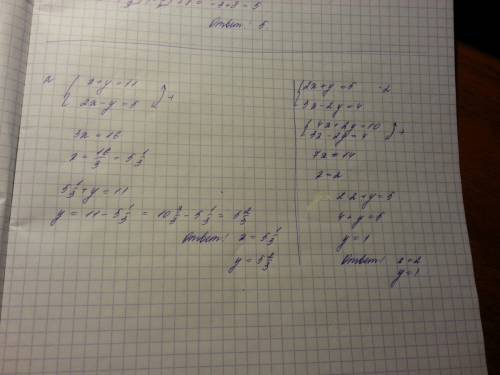 = -2+2-5
Ответ: 5.
x+y=11
2x-y=5
+
3x=16
x=16/3=5 1/3
5 1/3+y=11
y=11-5 1/3=10 3/3-5 1/3=5 2/3
Ответ: x=5 1/3
y=5 2/3
2x+y=5 ·2
3x-2y=4
4x+2y=10
3x-2y=4
+
7x=14
x=2
2·2+y=5
4+y=5
y=1
Ответ: x=2
y=1